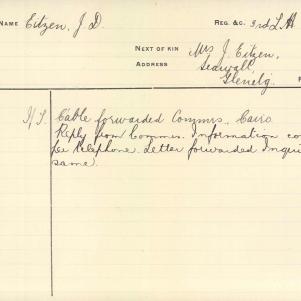 NAME Eitzen, J D. REG. &C. 3rd L.H
NEXT OF KIN Mrs J. Eitzen,
ADDRESS Seawall
Glenelg.
Cable forwarded Commrs. Cairo
Reply from Commrs. Information
per telephone. Letter forwarded
same.